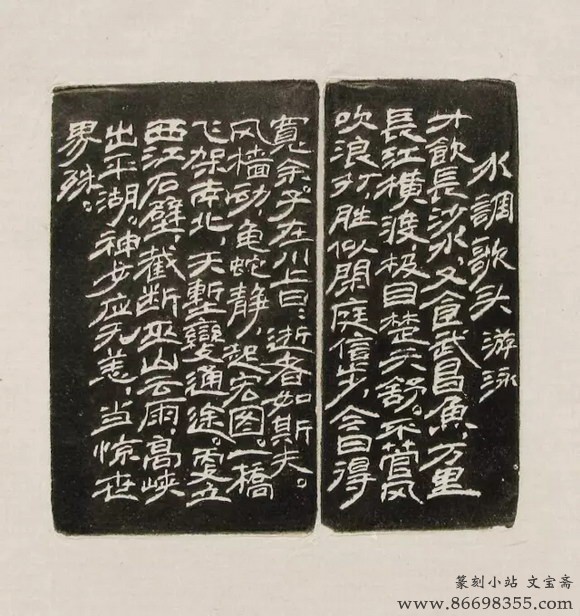 水調歌头 游泳
才飲長沙水，又食武昌魚，万里
長江橫渡，极目楚天舒。不管风
吹浪打，胜似閑庭信步，今日得
寬余。子在川上曰：逝者如斯夫。
风檣动，龟蛇静，起宏图。一橋
飞架南北，天塹變通途。更立
西江石壁，截断巫山云雨，高峡
出平湖。神女应无恙，当惊世
界殊。
篆刻小站 文宝斋
www.86698355.com